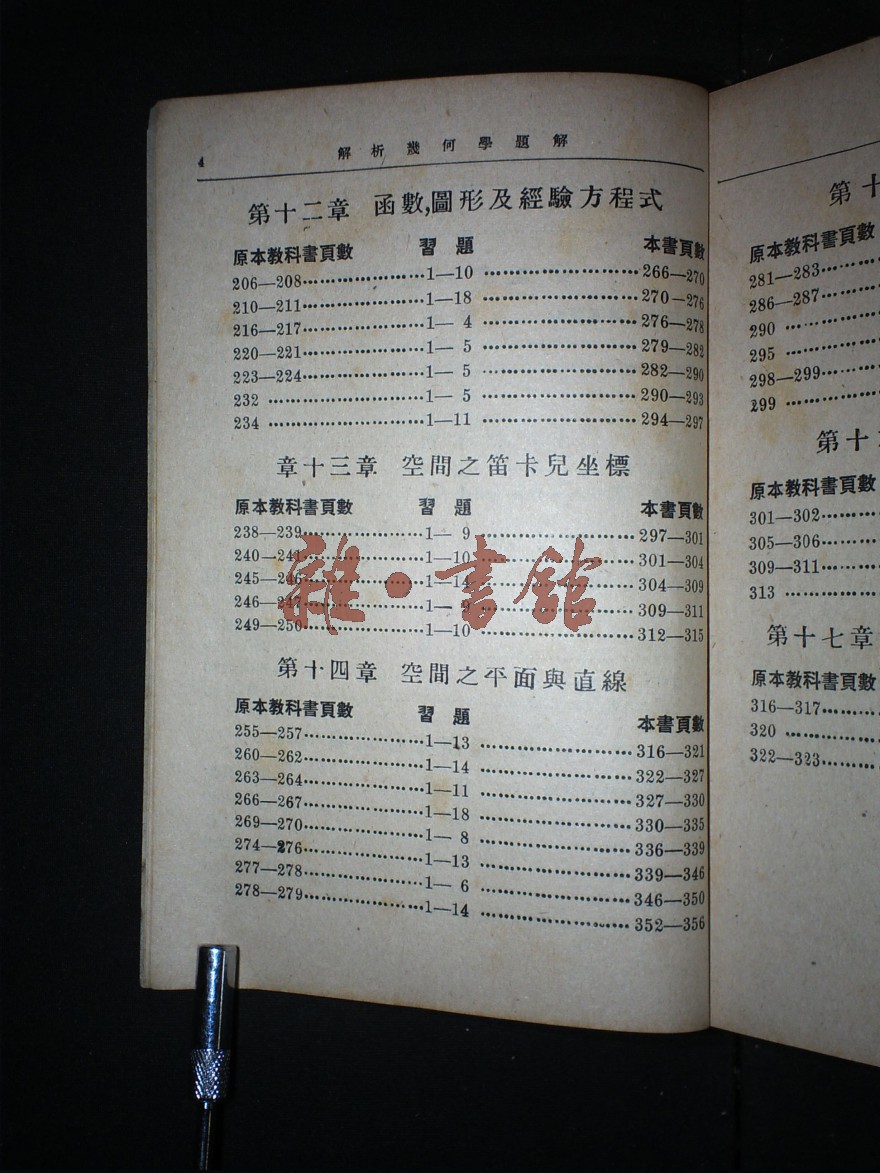 4 解析幾何學題解
第十二章 函數,圖形及經驗方程式
原本教科書頁數 習題 本書頁數
206—208……………………1—10……………………266—270
210—211……………………1—18……………………270—276
216—217……………………1— 4……………………276—278
220—221……………………1— 5……………………279—282
223—224……………………1— 5……………………282—290
232……………………1— 5……………………290—293
234……………………1—11……………………294—297
章十三章 空間之笛卡兒坐標
原本教科書頁數 習題 本書頁數
238—239……………………1— 9……………………297—301
240—241……………………1—10……………………301—304
245—246……………………1—14……………………304—309
246—247……………………1— 9……………………309—311
249—250……………………1—10……………………312—315
雜·書館
第十四章 空間之平面與直線
原本教科書頁數 習題 本書頁數
255—257……………………1—13……………………316—321
260—262……………………1—14……………………322—327
263—264……………………1—11……………………327—330
266—267……………………1—18……………………330—335
269—270……………………1— 8……………………336—339
274—276……………………1—13……………………339—346
277—278……………………1— 6……………………346—350
278—279……………………1—14……………………352—356
第十
原本教科書頁數
281—283…………
286—287…………
290…………
295…………
298—299…………
299…………
第十
原本教科書頁數
301—302…………
305—306…………
309—311…………
313…………
第十七章
原本教科書頁數
316—317…………
320…………
322—323…………